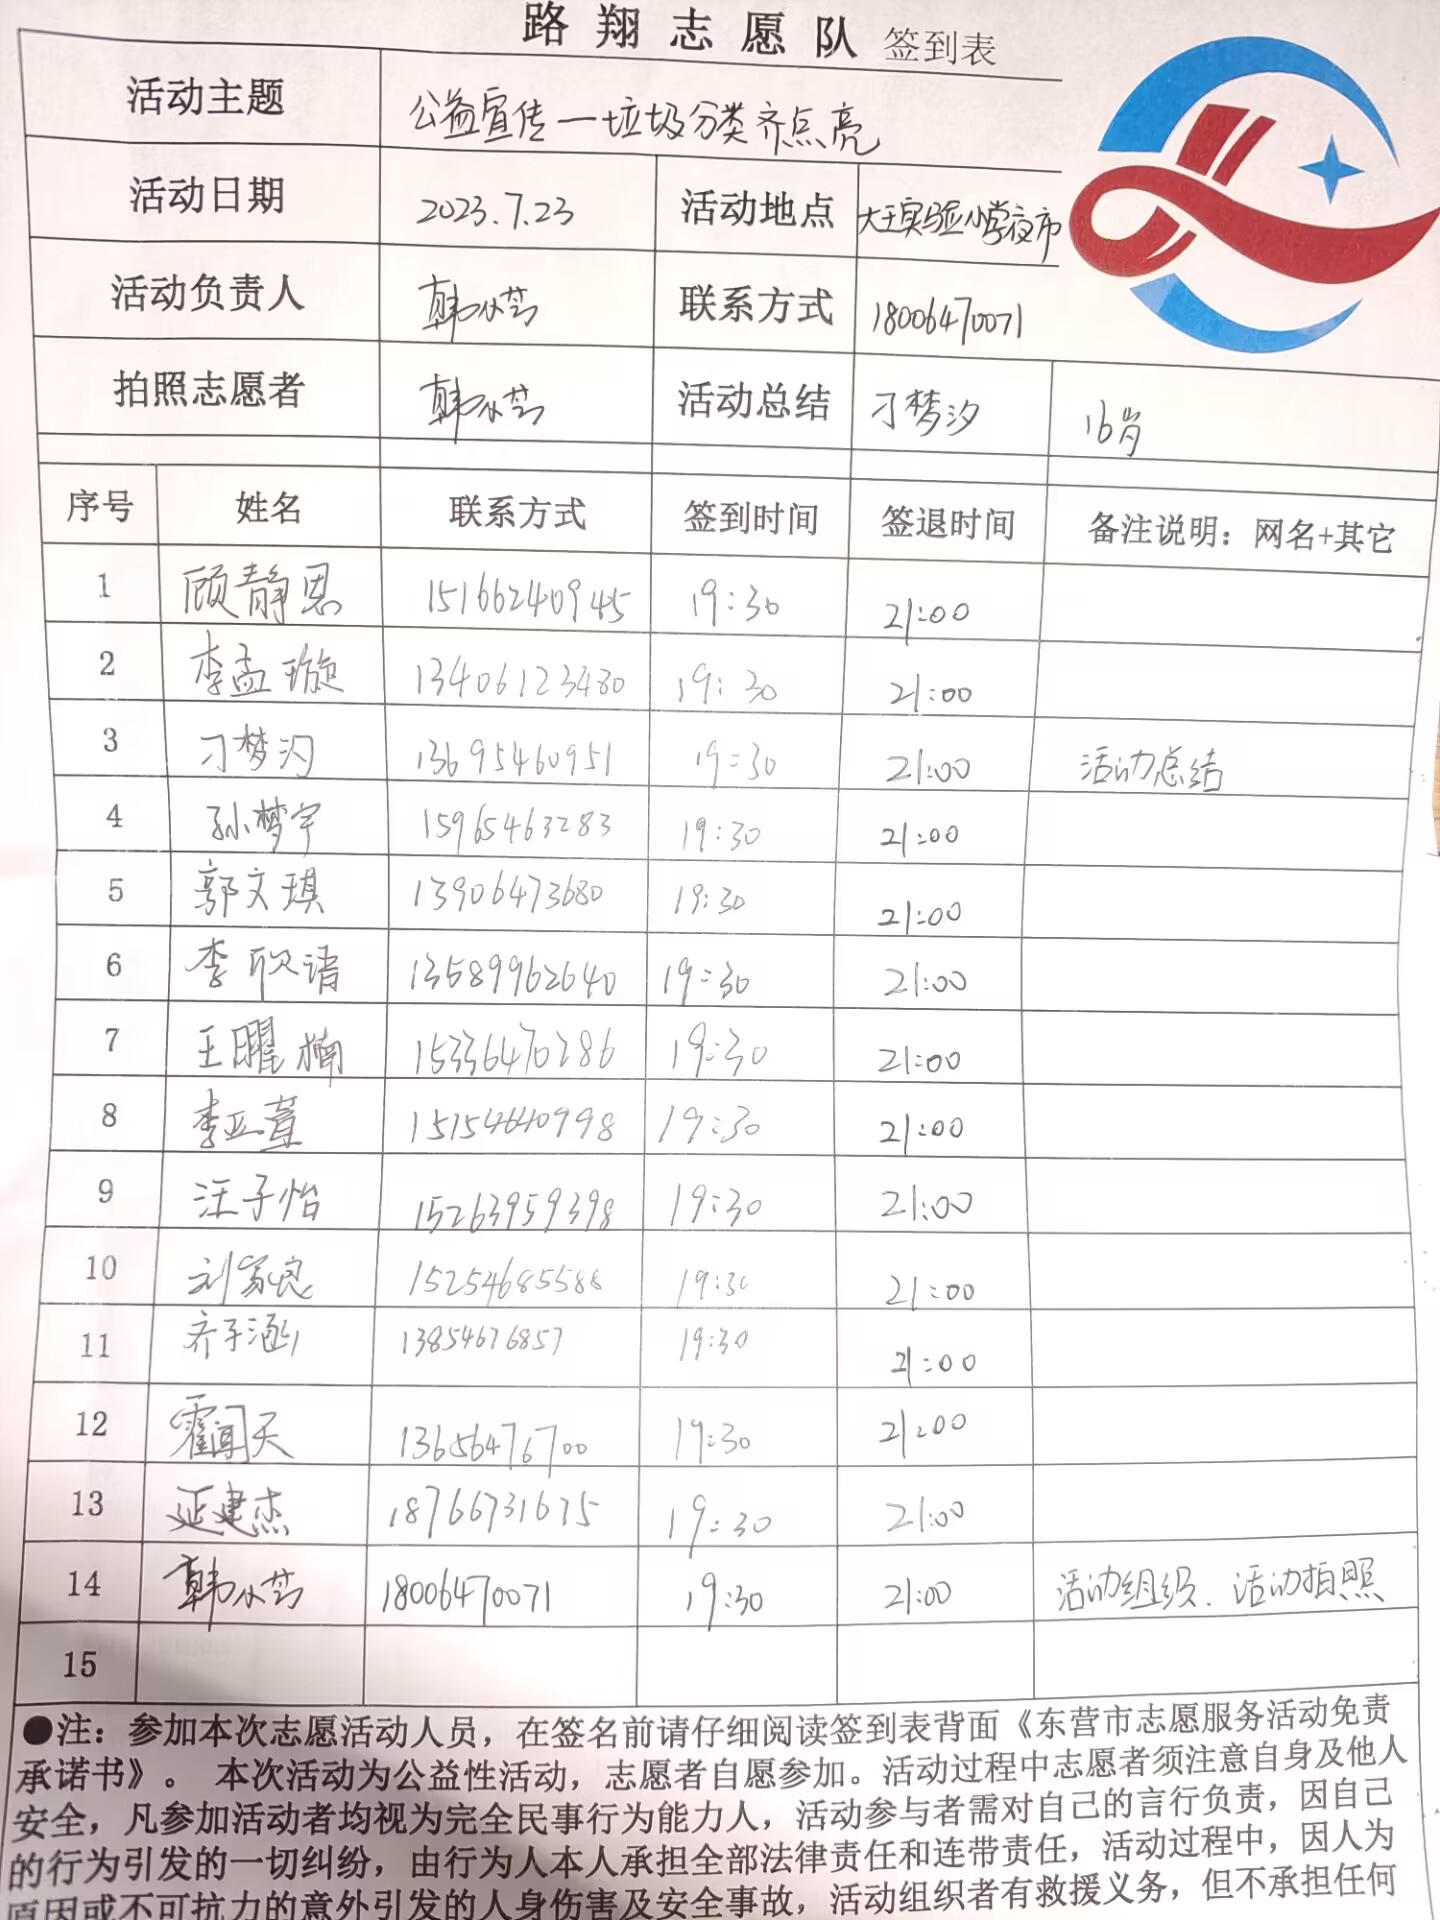 路翔志愿队 签到表
活动主题 公益宣传—垃圾分类齐点亮
活动日期 2023.7.23 活动地点 大王实验小学夜市
活动负责人 韩 联系方式 18006470071
拍照志愿者 韩 活动总结 刁梦汐 16岁
序号 姓名 联系方式 签到时间 签退时间 备注说明：网名+其它
1 顾静恩 15166240945 19:30 21:00
2 李孟璇 13406123480 19:30 21:00
3 刁梦汐 13695460951 19:30 21:00 活动总结
4 孙梦宇 15965463283 19:30 21:00
5 郭文琪 13906473680 19:30 21:00
6 李欣诺 13589962640 19:30 21:00
7 王曜楠 15336470286 19:30 21:00
8 李亚萱 15154640998 19:30 21:00
9 汪子怡 15263959398 19:30 21:00
10 刘家良 15254685588 19:30 21:00
11 齐子涵 13854676857 19:30 21:00
12 霍闻天 13656476700 19:30 21:00
13 延建杰 18766731675 19:30 21:00
14 韩 18006470071 19:30 21:00 活动组织、活动拍照
15
●注：参加本次志愿活动人员，在签名前请仔细阅读签到表背面《东营市志愿服务活动免责
承诺书》。 本次活动为公益性活动，志愿者自愿参加。活动过程中志愿者须注意自身及他人
安全，凡参加活动者均视为完全民事行为能力人，活动参与者需对自己的言行负责，因自己
的行为引发的一切纠纷，由行为人本人承担全部法律责任和连带责任，活动过程中，因人为
原因或不可抗力的意外引发的人身伤害及安全事故，活动组织者有救援义务，但不承担任何